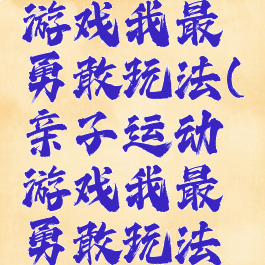 游戏我最
勇敢玩法(
亲子运动
游戏我最
勇敢玩法